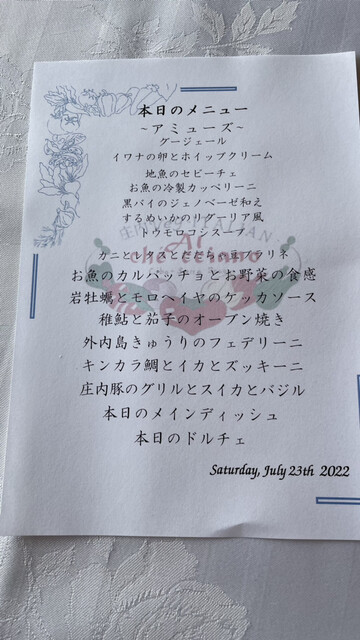 本日のメニュー
~アミューズ~
グージェール
イワナの卵とホイップクリーム
地魚のセビーチェ
お魚の冷製カッペリーニ
黒バイのジェノベーゼ和え
するめいかのリグーリア風
トウモロコシスープ
カニとレタスとだだちゃ豆プラリネ
お魚のカルパッチョとお野菜の食感
岩牡蠣とモロヘイヤのケッカソース
稚鮎と茄子のオーブン焼き
外内島きゅうりのフェデリーニ
キンカラ鯛とイカとズッキーニ
庄内豚のグリルとスイカとバジル
本日のメインディッシュ
本日のドルチェ
Saturday, July 23th 2022